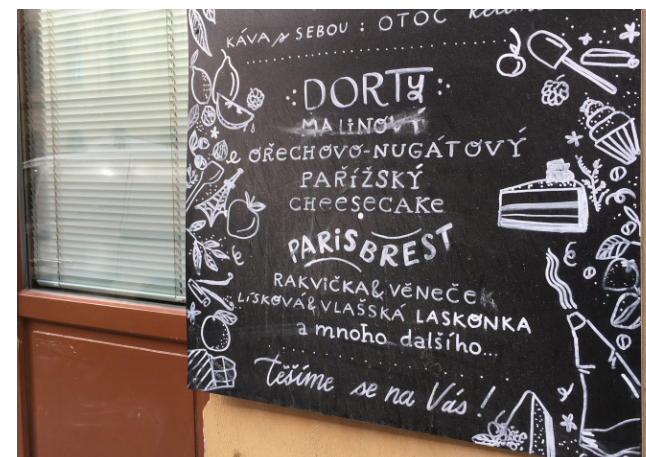 KÁVA S SEBOU : OTOČ
DORTY
MALINOVÝ
OŘECHOVO-NUGÁTOVÝ
PAŘÍŽSKÝ
CHEESECAKE
PARISBREST
RAKVIČKA & VĚNEČEK
LÍSKOVÁ & VLAŠSKÁ LASKONKA
a mnoho dalšího...
těšíme se na Vás!